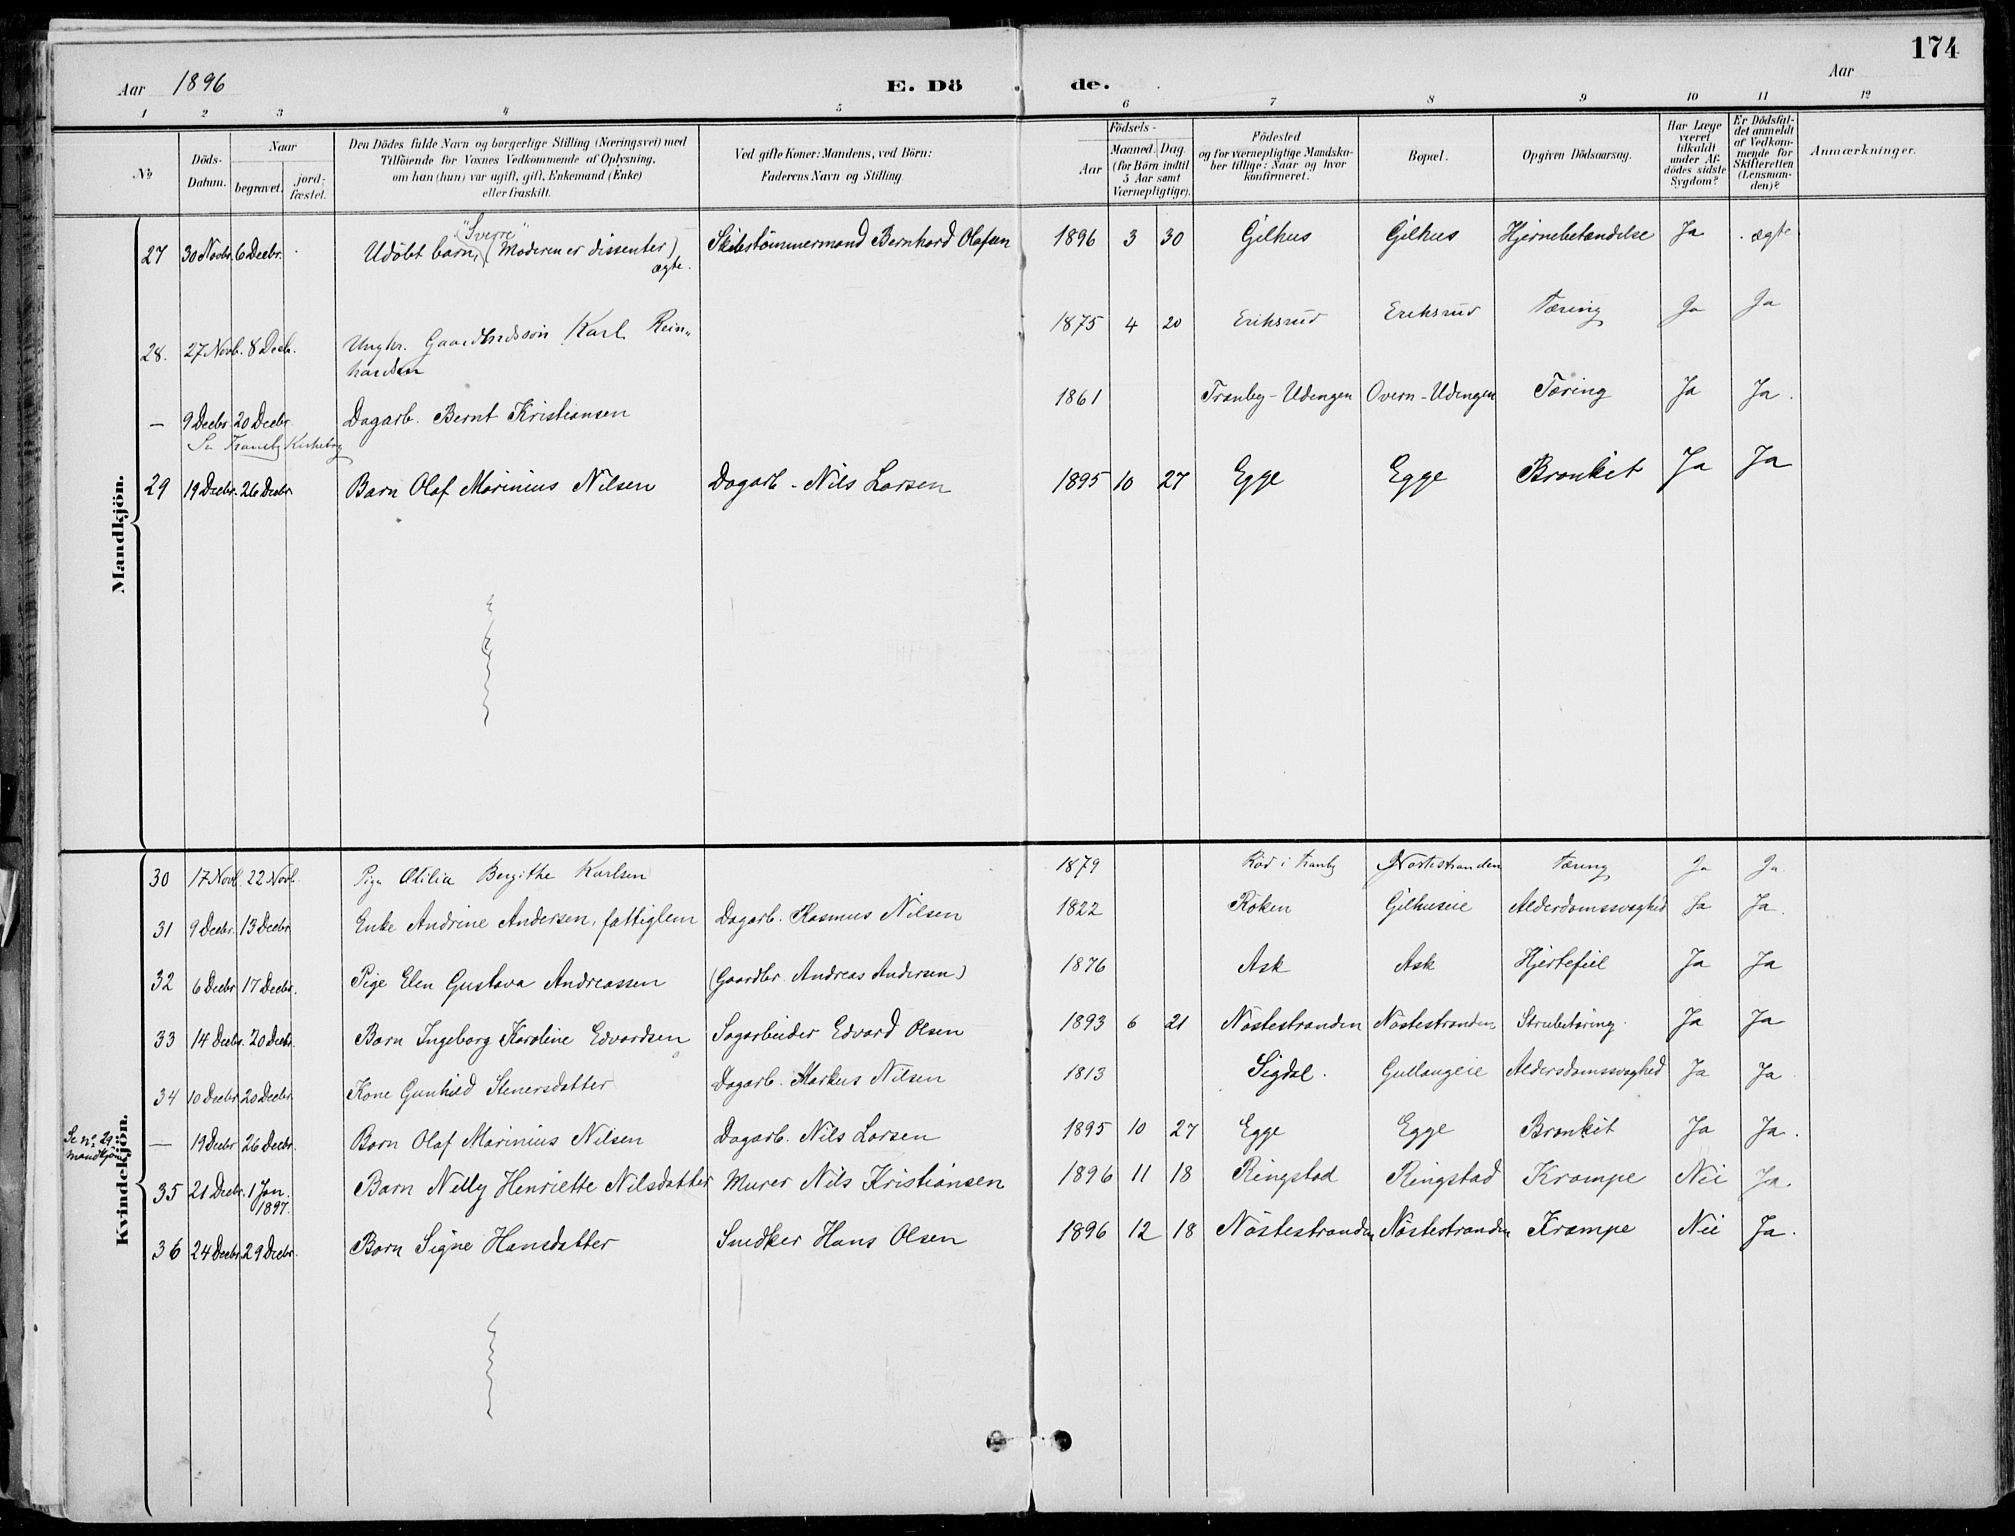 174
Aar 1896 E. Dö de. Aar
1 2 3 4 5 6 7 8 9 10 11 12
№
Döds-Datum.
Naar
begravet. jord-fæstet.
Den Dödes fulde Navn og borgerlige Stilling (Næringsvei) med
Tilföiende for Voxnes Vedkommende af Oplysning,
om han (hun) var ugift, gift, Enkemand (Enke)
eller fraskilt.
Ved gifte Koner: Mandens, ved Börn:
Faderens Navn og Stilling.
Födsels-
Aar Maaned. Dag.
(for Børn indtil
5 Aar samt
Værnepligtige).
Födested
og for værnepligtige Mandska-
ber tillige: Naar og hvor
konfirmeret.
Bopæl.
Opgiven Dödsaarsag.
Har Læge
været
tilkaldt
under Af-
dödes sidste
Sygdom?
Er Dödsfal-
det anmeldt
af Vedkom-
mende for
Skifteretten
(Lensman-
den)?
Anmærkninger.
Mandkjön.
"Sverre"
27 30 Novbr. 6 Decbr. Udöbt barn, (Moderen er dissenter) Skibstömmermand Bernhard Olafsen 1896 3 30 Gilhus Gilhus Hjernebetændelse Ja . ægte
ægte.
28. 27 Novb. 8 Decb. Ungkr. Gaardbrdssön Karl Rein- 1875 4 20 Eriksrud Eriksrud Tæring Ja Ja
hardsen
— 9 Decbr. 20 Decbr. Dagarb. Bernt Kristiansen 1861 Tranby-Udengen Overn-Udengen Tæring Ja Ja.
Se Tranby Kirkebog
29 19 Decbr. 26 Decbr Barn Olaf Marinius Nilsen Dagarb. Nils Larsen 1895 10 27 Egge Egge Bronkit Ja Ja
Kvindekjön.
30 17 Novb. 22 Novb. Pige Otilia Bergithe Karlsen 1879 Röd i Tranby Nøstestranden Tæring Ja Ja.
31 9 Decbr. 13 Decbr Enke Andrine Andersen, fattiglem Dagarb. Rasmus Nilsen 1822 Röken Gilhuseie Alderdomssvaghed Ja Ja.
32 6 Decbr 17 Decbr. Pige Elen Gustava Andreassen (Gaardbr. Andreas Andersen) 1876 Ask Ask Hjertefeil Ja Ja
33 14 Decbr. 20 Decbr. Barn Ingeborg Karoline Edvardsen Sagarbeider Edvard Olsen 1893 6 21 Nöstestranden Nöstestranden Strubetæring. Ja Ja
34 10 Decbr. 20 Decbr. Kone Gunhild Stenersdatter Dagarb. Markus Nilsen 1813 Sigdal. Gullaugeie Aldersdomssvaghed Ja Ja
Se nº 29
mandkjön — 19 Decbr 26 Decbr. Barn Olaf Marinius Nilsen Dagarb. Nils Larsen 1895 10 27 Egge Egge Bronkit Ja Ja.
35 21 Decbr. 1 Jan. 1897. Barn Nelly Henriette Nilsdatter Murer Nils Kristiansen 1896 11 18 Ringstad Ringstad Krampe Nei Ja.
36 24 Decbr. 29 Decbr. Barn Signe Hansdatter Snedker Hans Olsen 1896 12 18 Nöstestranden Nöstestranden Krampe Nei Ja.